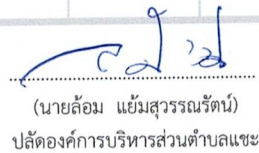 (นายล้อม แย้มสุวรรณรัตน์)
ปลัดองค์การบริหารส่วนตำบลแชะ